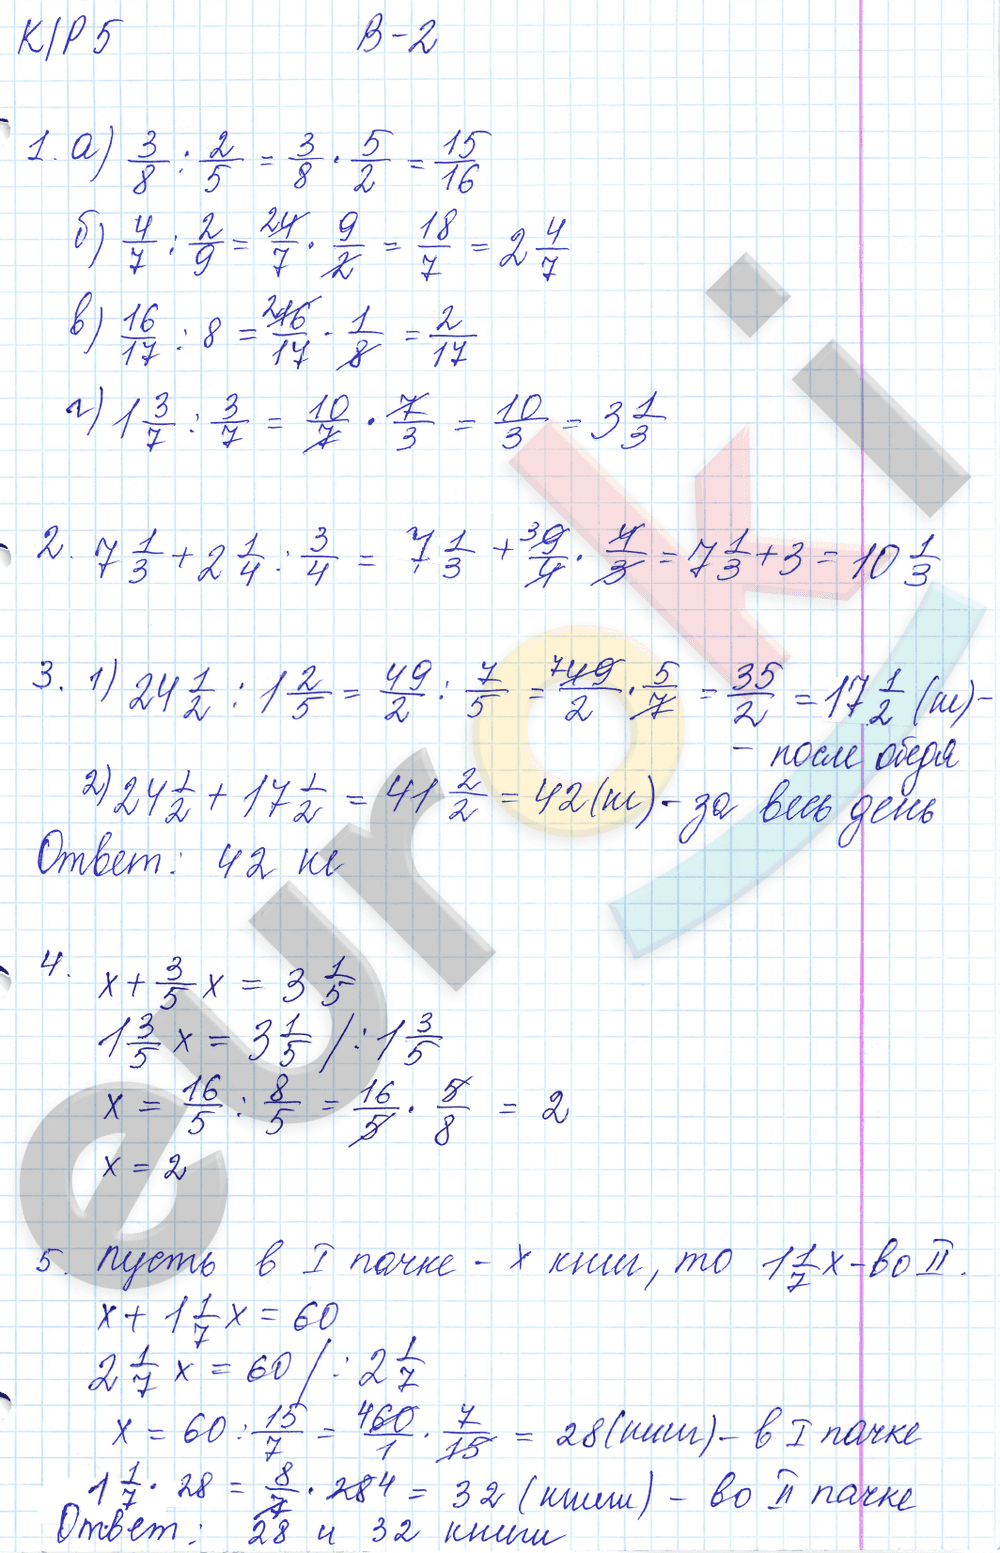 К/Р 5 В-2
1. а) 3/8 : 2/5 = 3/8 · 5/2 = 15/16
б) 4/7 : 2/9 = 2 4/7 · 9/2 = 18/7 = 2 4/7
в) 16/17 : 8 = 2 16/17 · 1/8 = 2/17
г) 1 3/7 : 3/7 = 10/7 · 7/3 = 10/3 = 3 1/3
2. 7 1/3 + 2 1/4 : 3/4 = 7 1/3 + 3 9/4 · 4/3 = 7 1/3 + 3 = 10 1/3
3. 1) 24 1/2 : 1 2/5 = 49/2 : 7/5 = 7 49/2 · 5/7 = 35/2 = 17 1/2 (кг) -
- после обеда
2) 24 1/2 + 17 1/2 = 41 2/2 = 42 (кг) - за весь день
Ответ: 42 кг
4. x + 3/5 x = 3 1/5
1 3/5 x = 3 1/5 / : 1 3/5
x = 16/5 : 8/5 = 16/5 · 5/8 = 2
x = 2
5. Пусть в I пачке - x книг, то 1 1/7 x - во II.
x + 1 1/7 x = 60
2 1/7 x = 60 / : 2 1/7
x = 60 : 15/7 = 4 60/1 · 7/15 = 28 (книг) - в I пачке
1 1/7 · 28 = 8/7 · 28 4 = 32 (книги) - во II пачке
Ответ: 28 и 32 книги
euroki